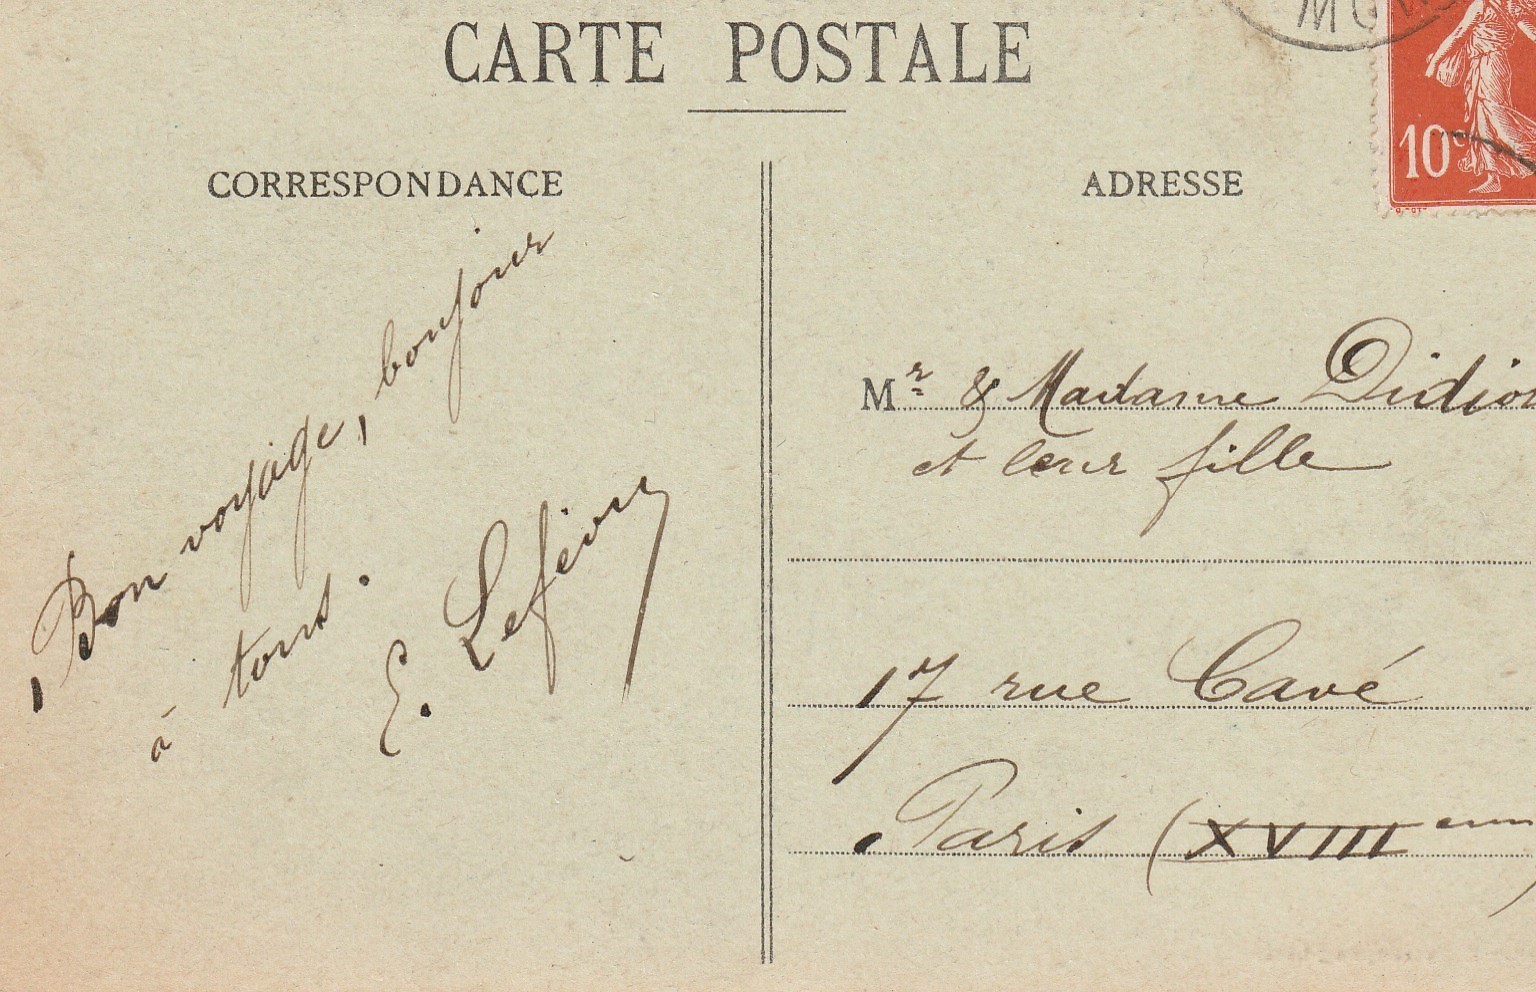 CARTE POSTALE
CORRESPONDANCE
Bon voyage, bonjour
à tous.
E. Lefèvre
ADRESSE
10c
Mr & Madame Didion
et leur fille
17 rue Cavé
Paris (XVIIIeme)